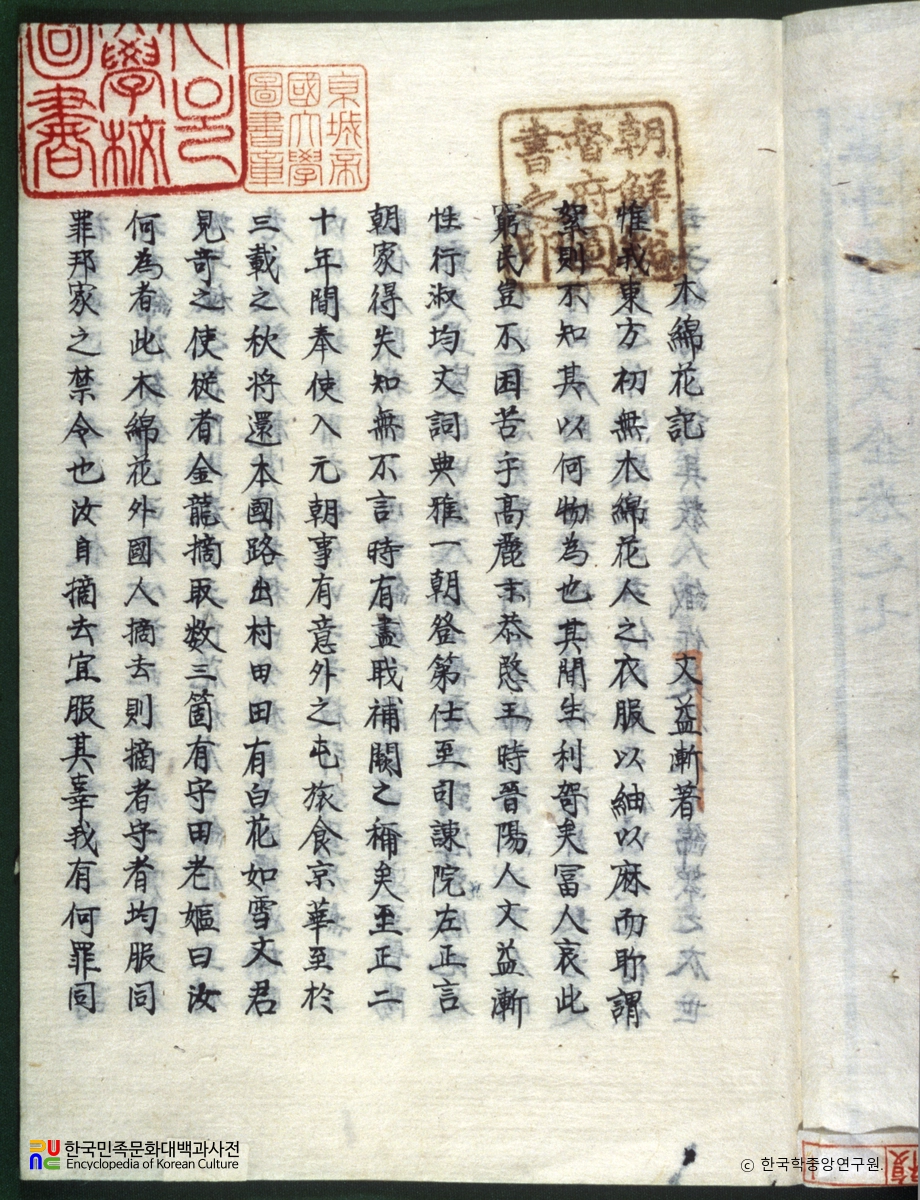 木綿花記 文益漸著
惟我東方初無木綿花人之衣服以紬以麻而所謂
絮則不知其以何物為也其間生利奇矣冨人哀此
窮民豈不困苦乎髙麗末恭愍王時晉陽人文益漸
性行淑均文詞典雅一朝登第仕至司諫院左正言
朝家得失知無不言時有盡职補闕之稱矣至正二
十年間奉使入元朝事有意外之屯旅食京華至於
三載之秋将還本國路出村田田有白花如雪文君
見奇之使從者金龍摘取数三箇有守田老嫗曰汝
何為者此木綿花外國人摘去則摘者守者均服同
罪邦家之禁令也汝自摘去宜服其辜我有何罪同
朝鮮總
督府圖
書之印
京城帝
國大學
圖書章
學校
圖書
한국민족문화대백과사전
Encyclopedia of Korean Culture
© 한국학중앙연구원